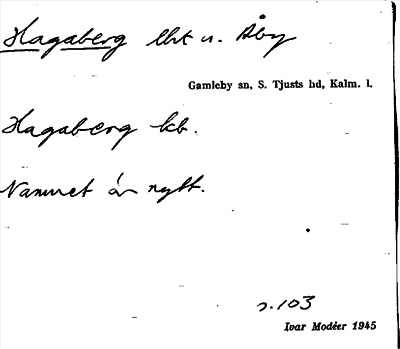 Hagaberg lht u. Åby
Gamleby sn, S. Tjusts hd, Kalm. l.
Hagaberg kb.
Namnet är nytt.
s. 103
Ivar Modéer 1945